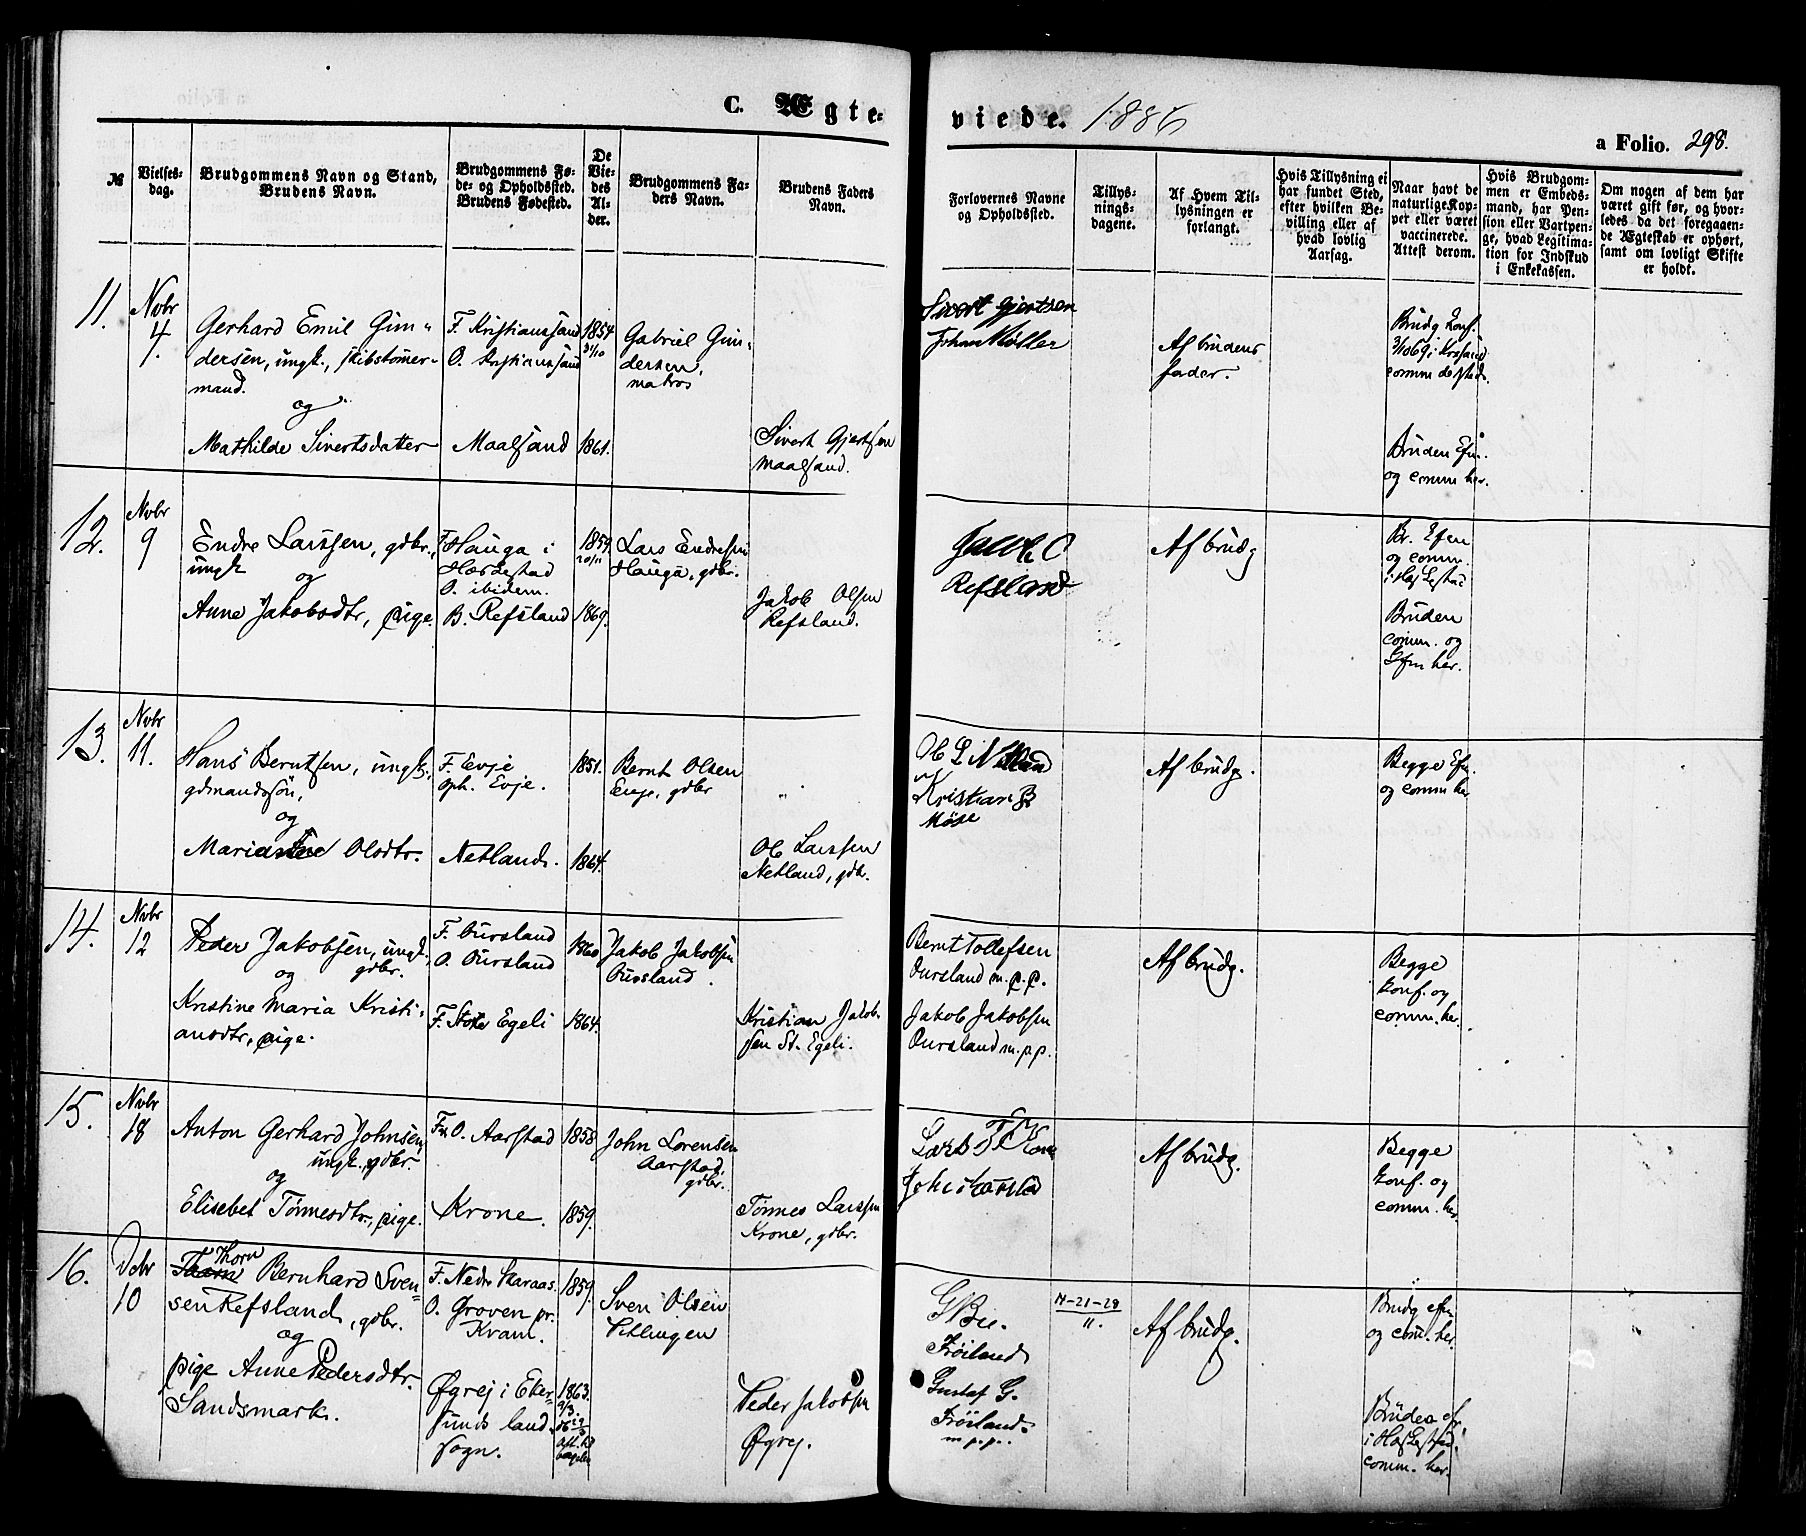 C. Ægte-
viede. 1886
a Folio. 298.
№
Vielses-
dag.
Brudgommens Navn og Stand,
Brudens Navn.
Brudgommens Fø-
de- og Opholdssted.
Brudens Fødested.
De
Vie-
des
Al-
der.
Brudgommens Fa-
ders Navn.
Brudens Faders
Navn.
Forlovernes Navne
og Opholdssted.
Tillys-
nings-
dagene.
Af Hvem Til-
lysningen er
forlangt.
Hvis Tillysning ei
har fundet Sted,
efter hvilken Be-
villing eller af
hvad lovlig
Aarsag.
Naar havt de
naturlige Kop-
per eller været
vaccinerede.
Attest derom.
Hvis Brudgom-
men er Embeds-
mand, har Pen-
sion eller Vartpen-
ge, hvad Legitima-
tion for Indskud
i Enkekassen.
Om nogen af dem har
været gift før, og hvor-
ledes da det foregaaen-
de Ægteskab er ophørt,
samt om lovligt Skifte
er holdt.
11.
Nvbr
4.
Gerhard Emil Gun-
dersen, ungk., skibstømer-
mand.
og
Mathilde Sivertsdatter
F. Kristianssand
O. Kristianssand
Maalsand
1854
31/10
1861.
Gabriel Gun-
dersen,
matros
Sivert Gjertsen
Maalsand.
Sivert Gjertsen
Johan Møller
Af brudens
fader.
Brudg. konf.
3/10 69 i Krsand
comm. desteds.
Bruden Efn.
og comm her.
12.
Nvbr
9
Endre Larssen, gdbr.,
ungk
og
Anne Jakobsdtr, pige.
F. Hauga i
Hæskestad
O. ibidem.
B. Refsland
1859.
20/11
1869.
Lars Endresen
Hauga, gdbr.
Jakob Olsen
Refsland.
Jacob O
Refsland
Af brudg
Br. Efn
og comm.
i Hæskestad
Bruden
comm. og
Efn her.
13.
Nvbr
11.
Hans Berntsen, ungk.,
gdmandssøn,
og
Olsdtr.
F. Evje
oph. Evje.
Netland.
1851.
1864.
Bernt Olsen
Evje, gdbr
Ole Larssen
Netland, gdbr.
Ole L Netland
Kristian B
Møse
Af brudg.
Begge Efn.
og comm her
14.
Nvbr
12
Peder Jakobsen, ungk.,
og gdbr.
Kristine Maria Kristi-
ansdtr, pige.
F. Oursland
O. Oursland
F. Store Egeli
1860
1864.
Jakob Jakobsen
Oursland.
Kristian Jakob-
sen St. Egeli.
Bernt Tollefsen
Oursland m.p.p.
Jakob Jakobsen
Oursland m.p.p.
Af brudg.
Begge
konf. og
comm. her.
15.
Nvbr
18
Anton Gerhard Johnsen,
ungk., gdbr.
og
Elisebet Tønnesdtr., pige.
F. O. Aarstad
Krone.
1858
1859.
John Lorensen
Aarstad.
gdbr.
Tønnes Larssen
Krone, gdbr.
Lars T Krone
Af brudg.
Begge
konf. og
comm. her
16.
Dcbr
10
Thorn
Bernhard Sven-
sen Refsland, gdbr.
og
pige Anne Pedersdtr.
Sandsmark.
F. Nedre Skaraas.
O. Groven pr.
Kram.
Øgrej i Eker-
sunds land-
sogn.
1859.
1863.
Sven Olsen
Peder Jakobsen
Øgrej.
Frøiland
Gustaf G.
Frøiland.
m.p.p.
14-21-28
11.
Af brudg.
Brudg efn
og com. her.
Bruden ef.
comm. her.